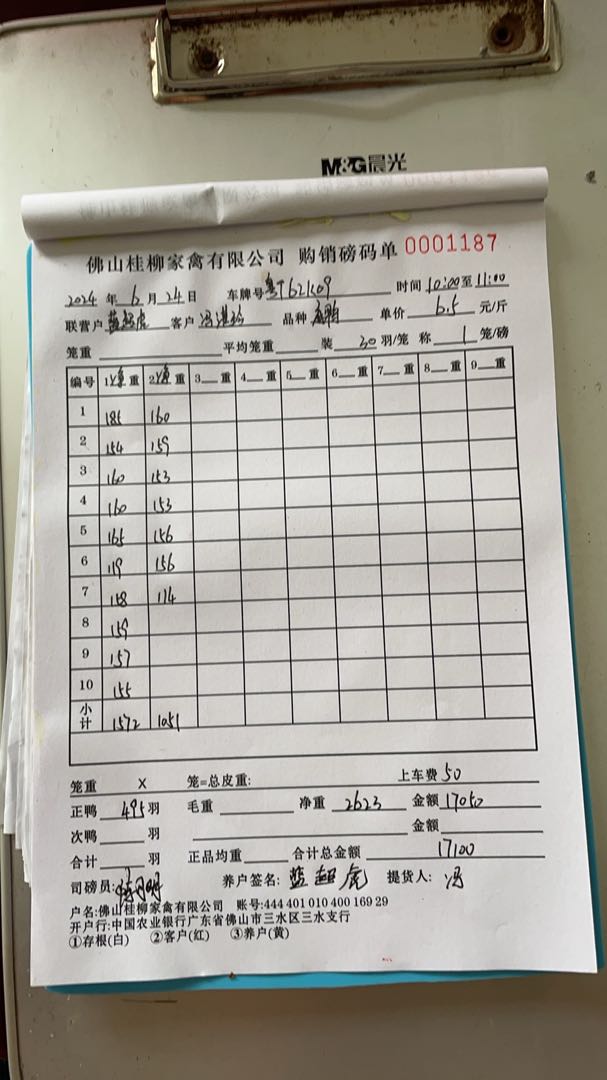 M&G晨光
佛山桂柳家禽有限公司 购销磅码单 0001187
2024年6月24日 车牌号粤T621K09 时间10:00至11:00
联营户蓝超虎 客户 品种 单价6.5元/斤
笼重 平均笼重 装30羽/笼 称1笼/磅
编号 1净重 2净重 3重 4重 5重 6重 7重 8重 9重
1 185 160
2 154 159
3 160 153
4 160 153
5 165 156
6 119 156
7 158 114
8 159
9 157
10 155
小计 1572 1051
笼重 X 笼=总皮重: 上车费50
正鸭495羽 毛重 净重2623 金额17050
次鸭 羽 金额
合计 羽 正品均重 合计总金额17100
司磅员: 养户签名:蓝超虎 提货人:冯
户名:佛山桂柳家禽有限公司 账号:444 401 010 400 169 29
开户行:中国农业银行广东省佛山市三水区三水支行
①存根(白) ②客户(红) ③养户(黄)